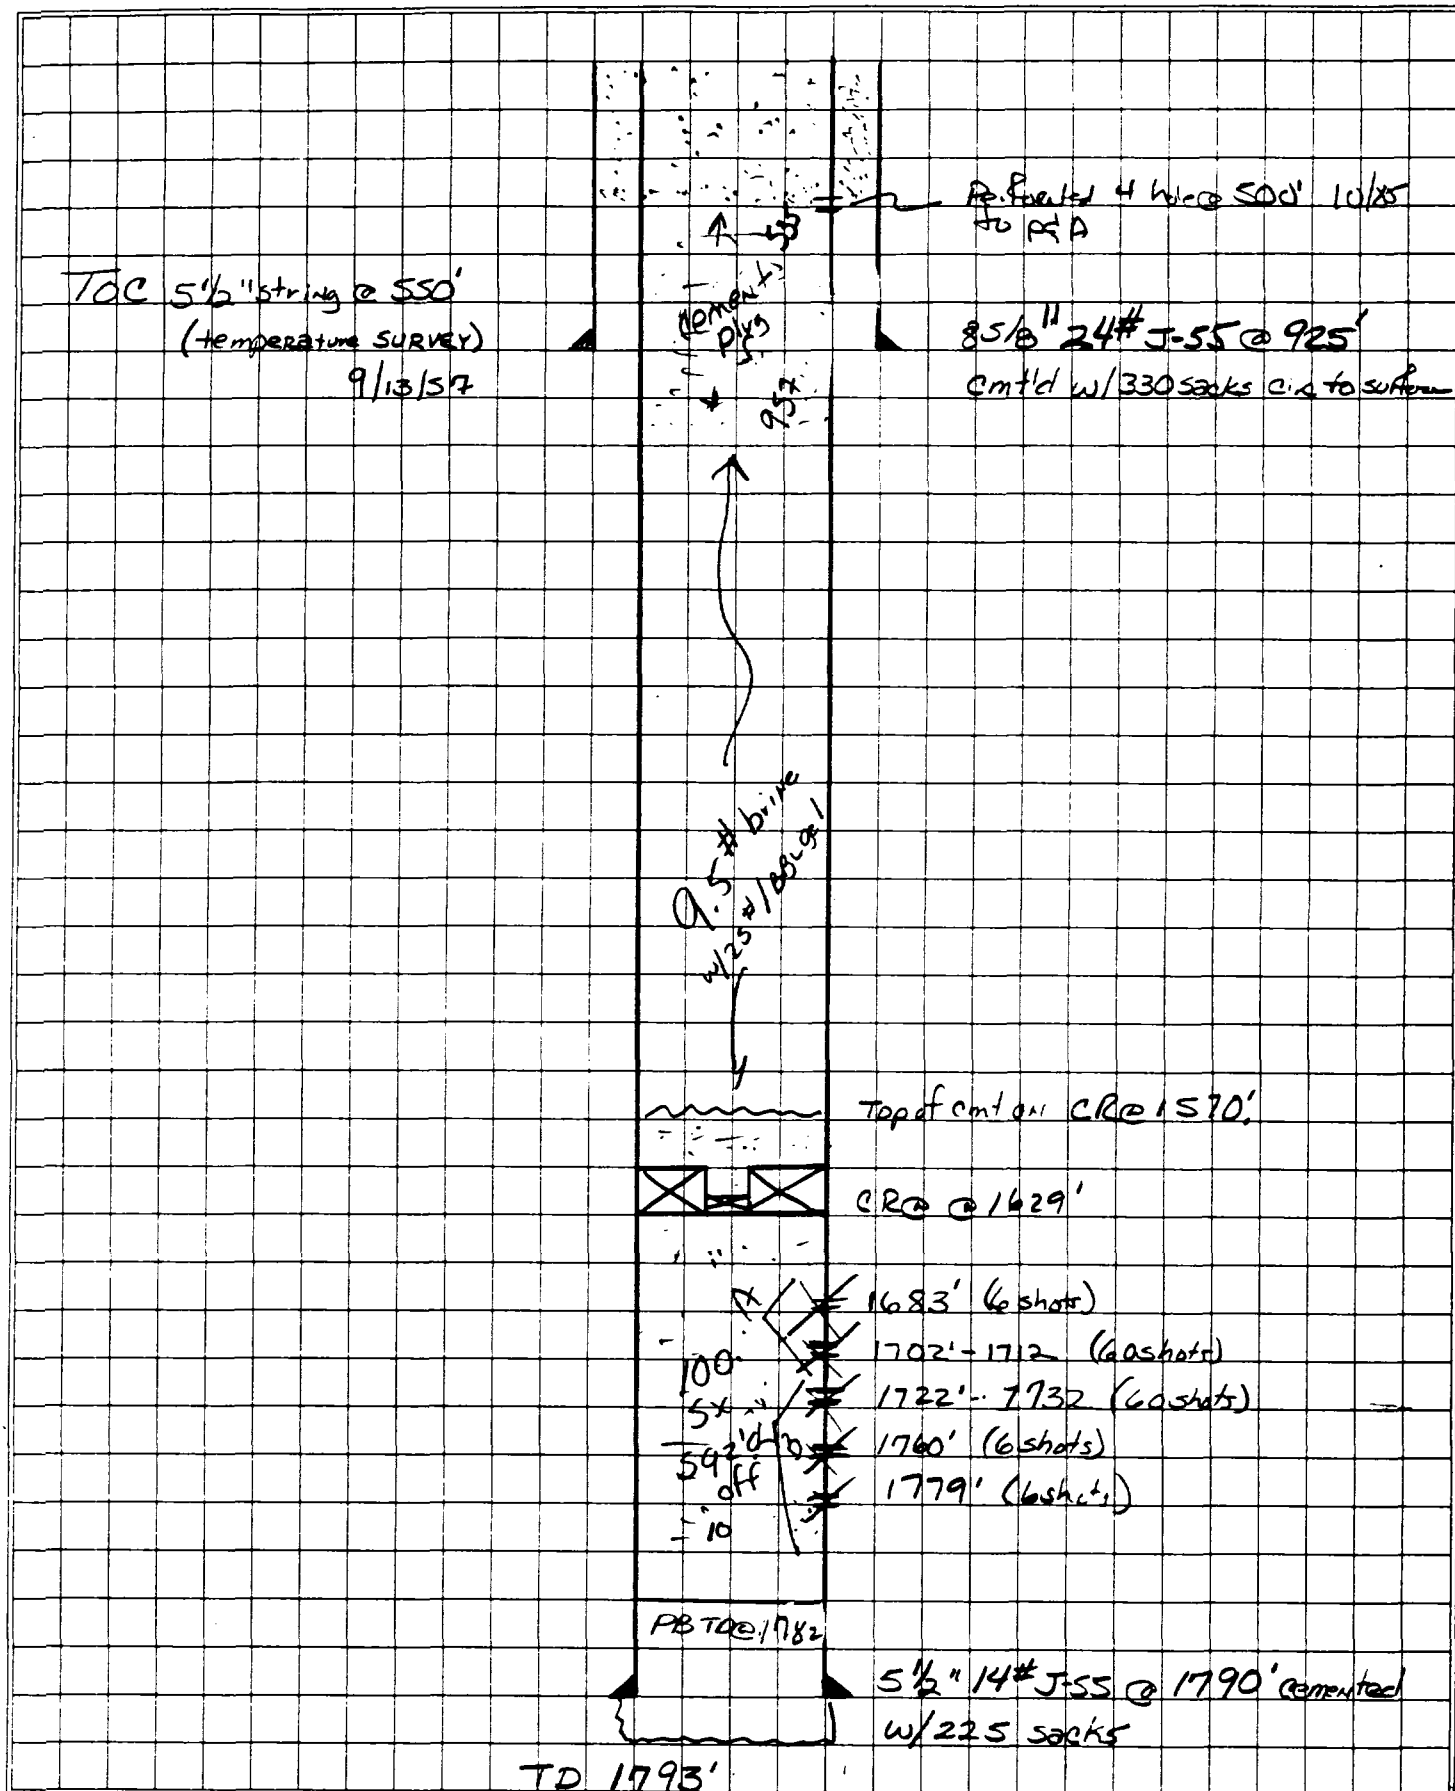 Perforated 4 hole @ 500' 10/85
to P&A
TOC 5 1/2" string @ 550'
(temperature SURVEY)
9/13/57
cement
plug
8 5/8" 24# J-55 @ 925'
Cmt'd w/330 sacks circ to surface
9.5# brine
w/25#/BBL gel
Top of cmt on CR @ 1570'
CR@ @ 1629'
1683' (6 shots)
1702'-1712 (60 shots)
1722'-1732 (60 shots)
1760' (6 shots)
1779' (6 shots)
100
5x
sqz'd
off
PBTD@1782
5 1/2" 14# J-55 @ 1790' cemented
w/225 sacks
TD 1793'